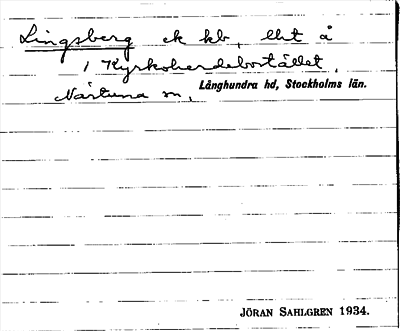 Lingsberg ek kb, llit å
1 Kyrkoherdebostället,
Närtuna sn, Långhundra hd, Stockholms län.
JÖRAN SAHLGREN 1934.